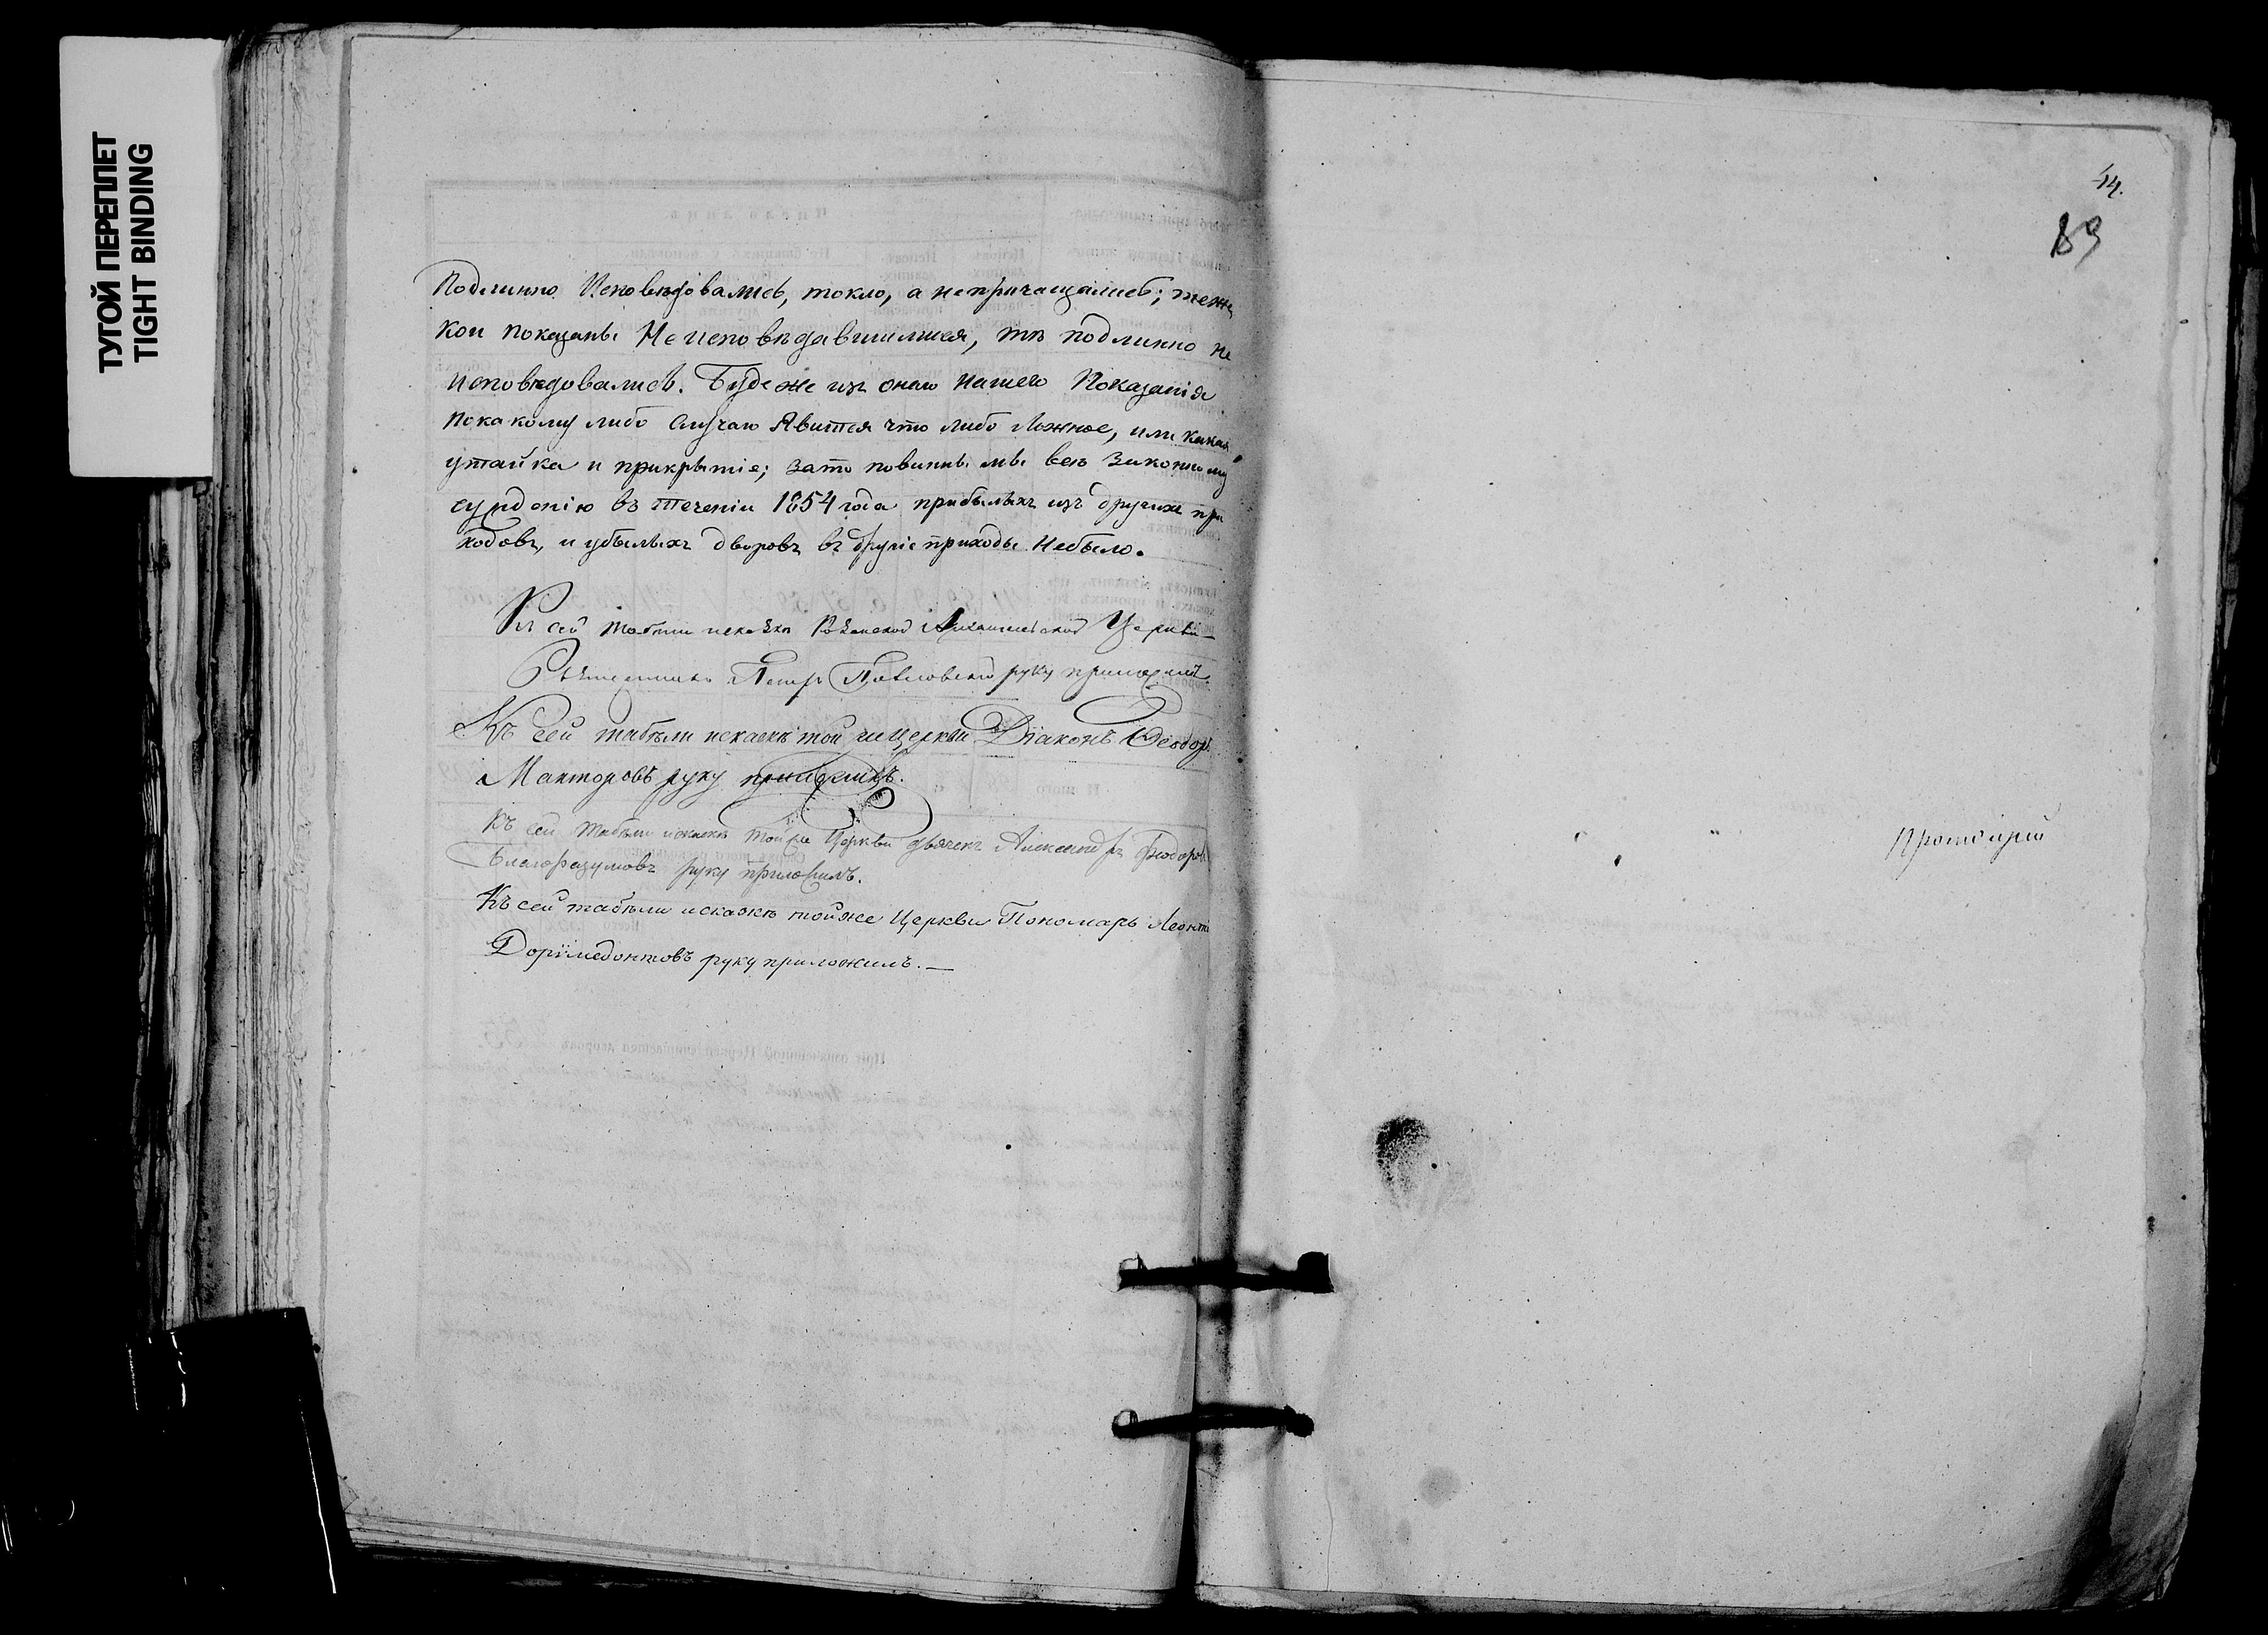 ТУГОЙ ПЕРЕПЛЕТ
TIGHT BINDING
44.
89
Подлинно Исповѣдовались, токмо, а непричащались; теже
кои показаны Не исповѣдавшимися, тѣ подлинно не
исповѣдовались. Буде же изъ онаго нашего Показанія
покакому либо Случаю Явится что либо Ложное, или какая
утайка и прикрытіе; зато повинны мы всю Законному
сужденію въ теченіи 1854 года прибылыхъ изъ другихъ при
ходовъ, и убылыхъ дворовъ въ другіе приходы Небыло.
Къ сей табели исказкѣ Церкви
Священникъ Петръ Павловскій руку приложилъ.
Къ сей табѣли искаскѣ той же Церкви Діаконъ Ѳеодоръ
руку приложилъ.
Къ сей табѣли искаскѣ тойже Церкви дьячекъ Александръ Ѳеодоровъ
Благоразумовъ руку приложилъ.
Къ сей табѣли искаскѣ тойже Церкви Пономарь Леонтій
Доримедонтовъ руку приложилъ.—
Протоіерей